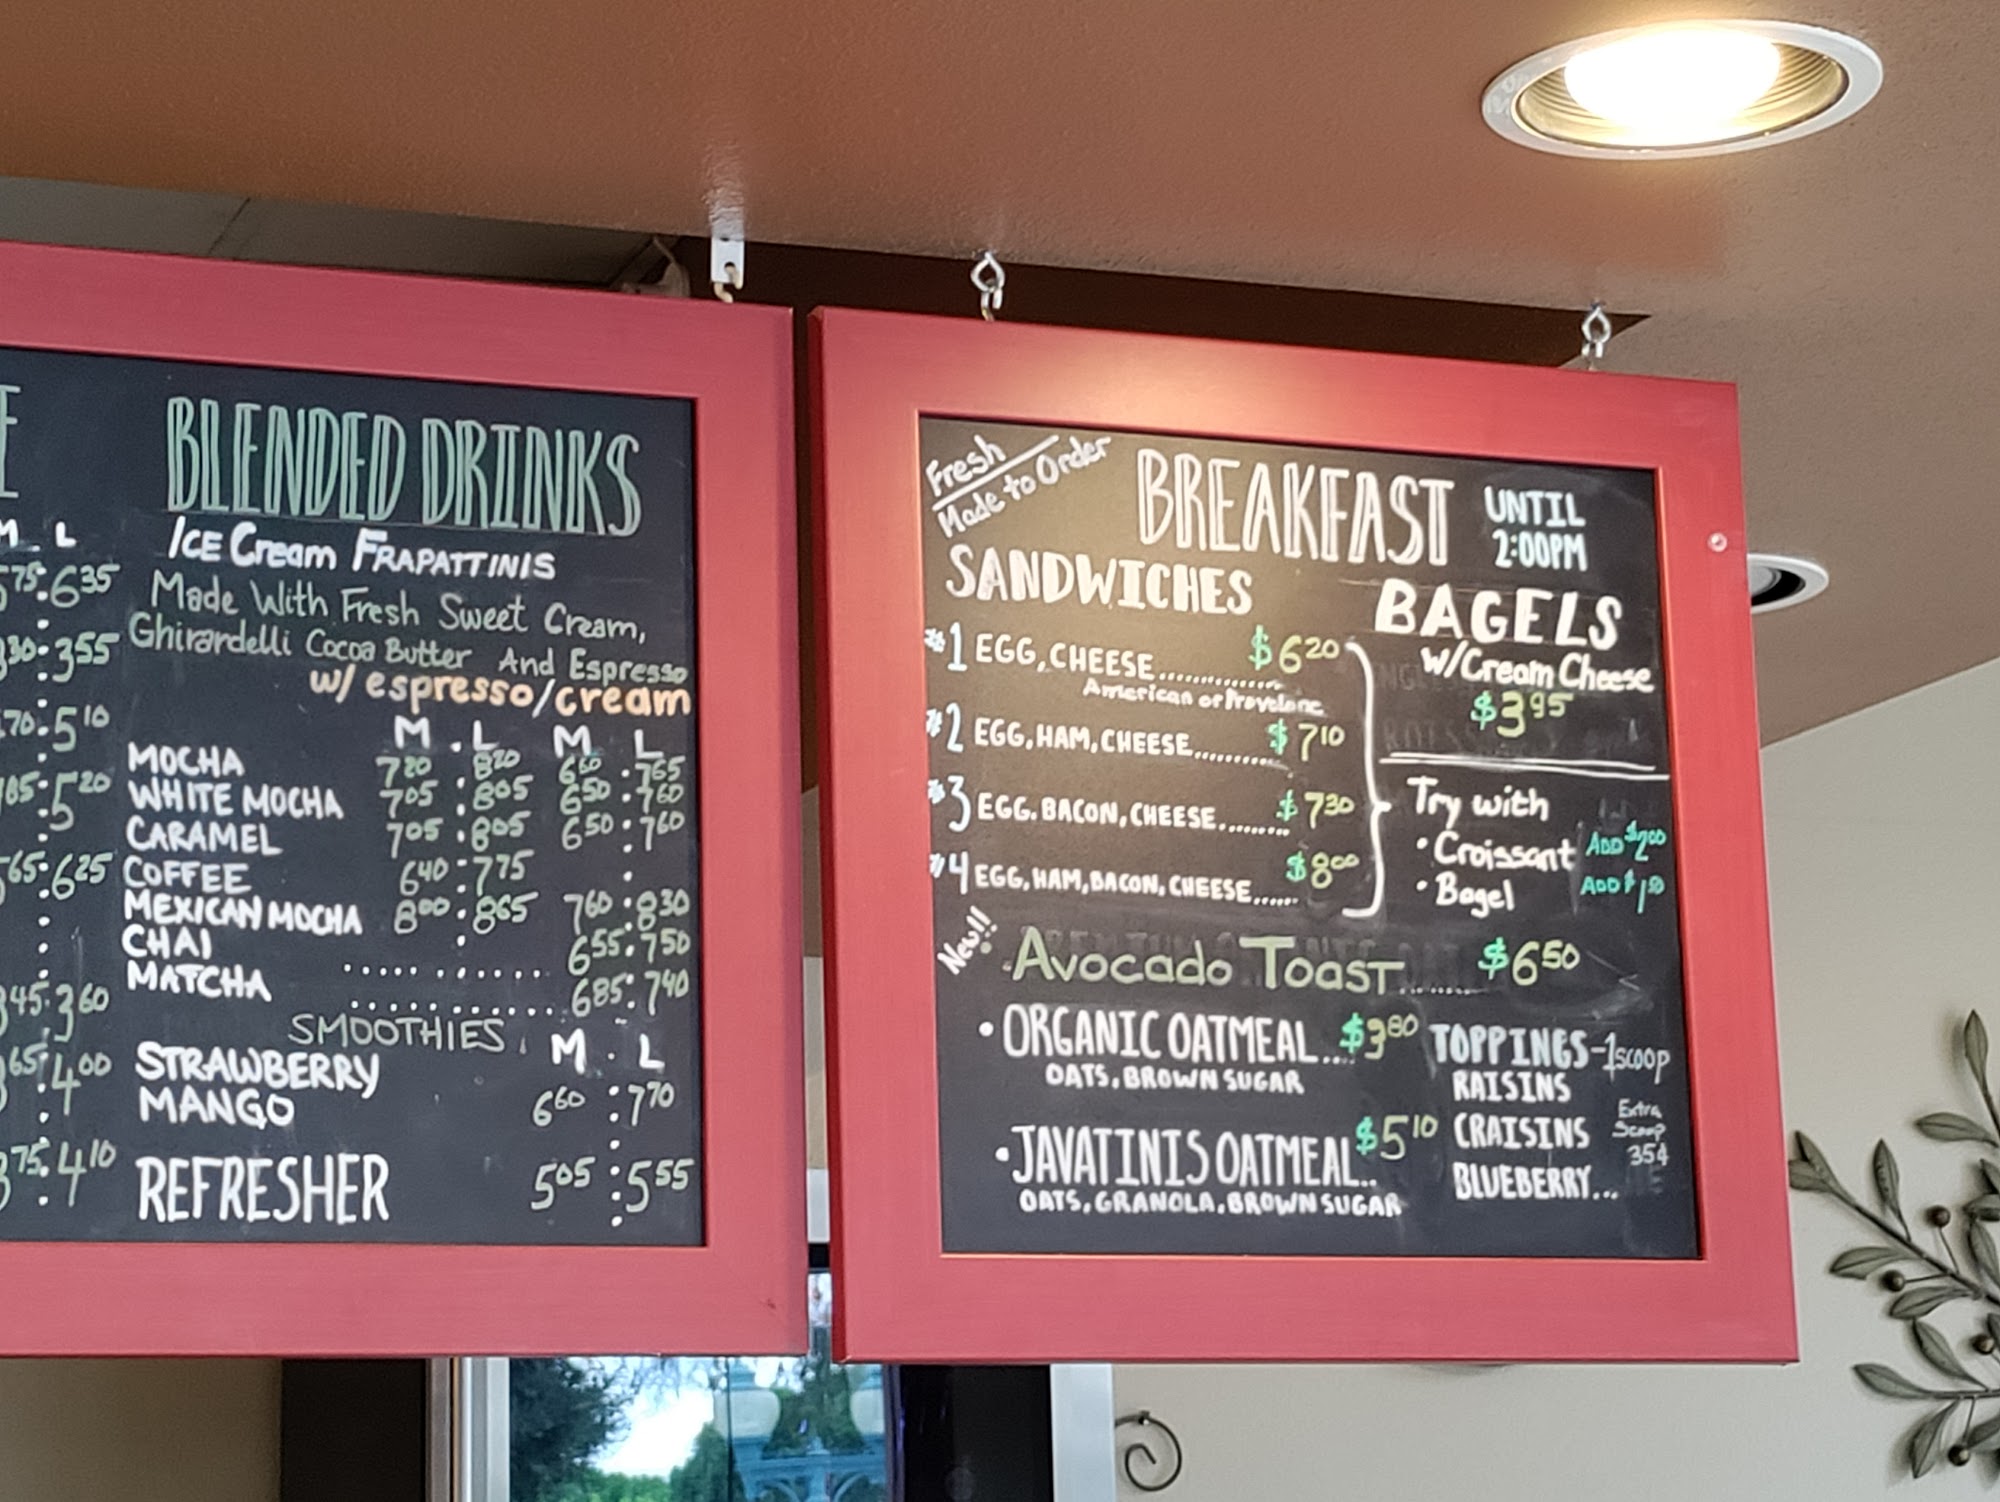 M . L
6 35
3 55
70 . 5 10
05 . 5 20
65 . 6 25
45 . 3 60
65 . 4 00
75 . 4 10
BLENDED DRINKS
ICE Cream FRAPATTINIS
Made With Fresh Sweet Cream,
Ghirardelli Cocoa Butter And Espresso
w/ espresso/cream
M . L M L
MOCHA 7 20 . 8 20 6 60 . 7 65
WHITE MOCHA 7 05 . 8 05 6 50 . 7 60
CARAMEL 7 05 . 8 05 6 50 : 7 60
COFFEE 6 40 . 7 75
MEXICAN MOCHA 8 00 . 8 65 7 60 . 8 30
CHAI .............. 6 55 . 7 50
MATCHA .............. 6 85 . 7 40
SMOOTHIES M . L
STRAWBERRY
MANGO 6 60 : 7 70
REFRESHER 5 05 : 5 55
Fresh
Made to Order
BREAKFAST UNTIL
2:00PM
SANDWICHES
#1 EGG, CHEESE.............. $6 20
American or Provolone
#2 EGG, HAM, CHEESE.......... $7 10
#3 EGG. BACON, CHEESE......... $7 30
#4 EGG, HAM, BACON, CHEESE..... $8 00
BAGELS
w/Cream Cheese
$3 95
Try with
• Croissant ADD $2 00
• Bagel ADD $1
New!!
AVOCADO TOAST........ $6 50
• ORGANIC OATMEAL... $3 80
OATS, BROWN SUGAR
• JAVATINIS OATMEAL.. $5 10
OATS, GRANOLA, BROWN SUGAR
TOPPINGS-1 SCOOP
RAISINS
CRAISINS
BLUEBERRY...
Extra
Scoop
35¢